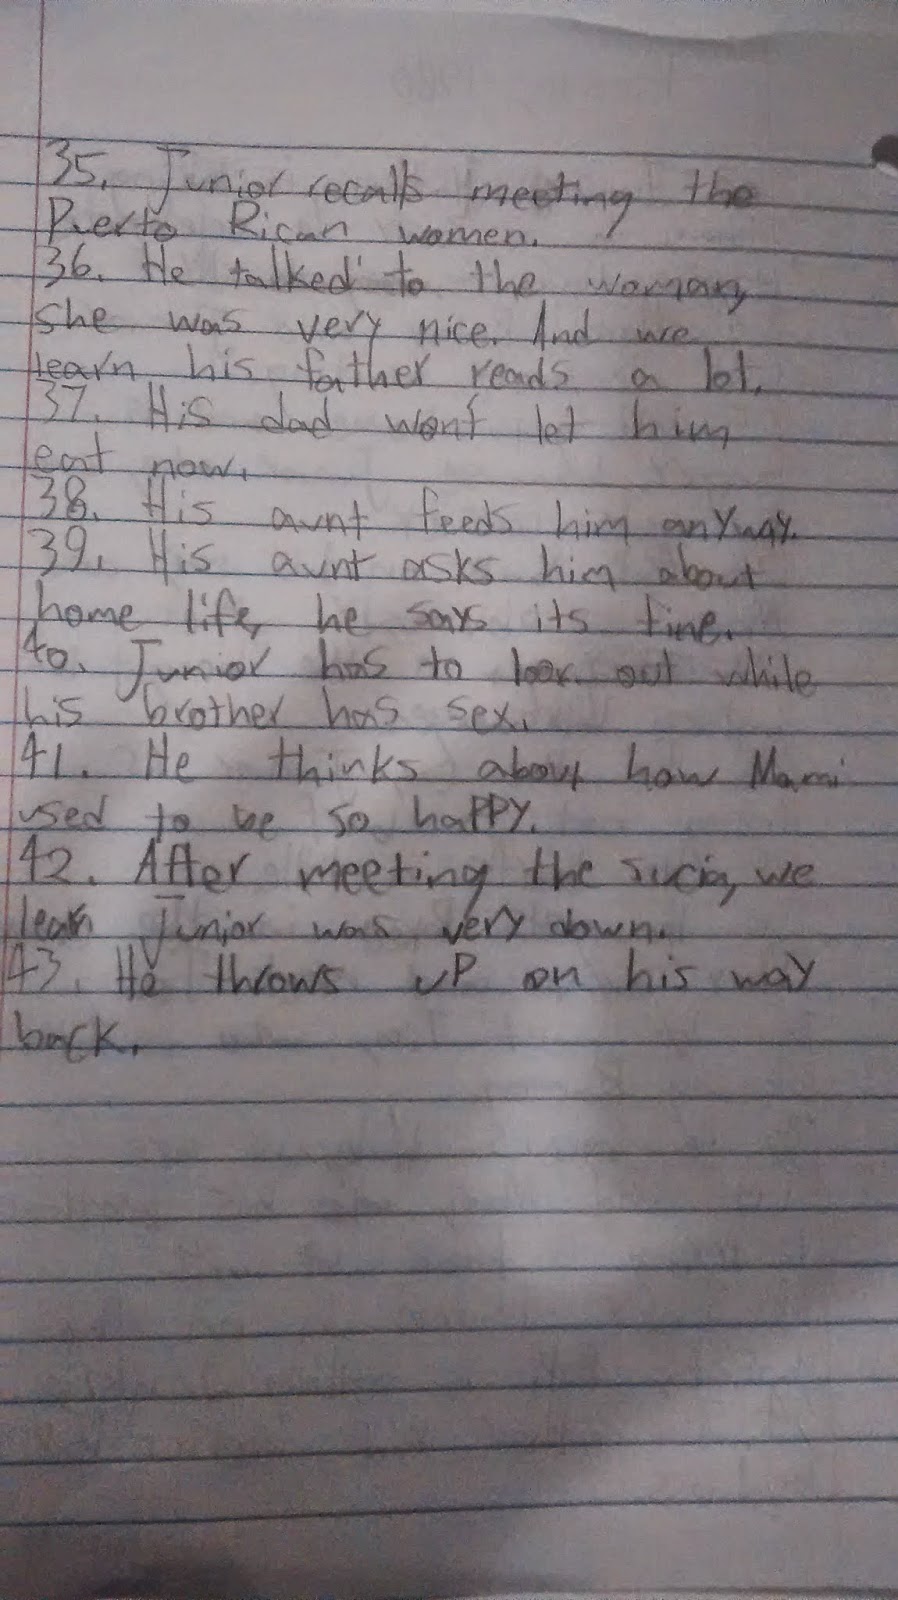 35. Junior recalls meeting the
Puerto Rican women.
36. He talked to the woman,
she was very nice. And we
learn his father reads a lot.
37. His dad won't let him
eat now.
38. His aunt feeds him anyway.
39. His aunt asks him about
home life, he says its fine.
40. Junior has to look out while
his brother has sex.
41. He thinks about how Mami
used to be so happy.
42. After meeting the sucia, we
learn Junior was very down.
43. He throws up on his way
back.